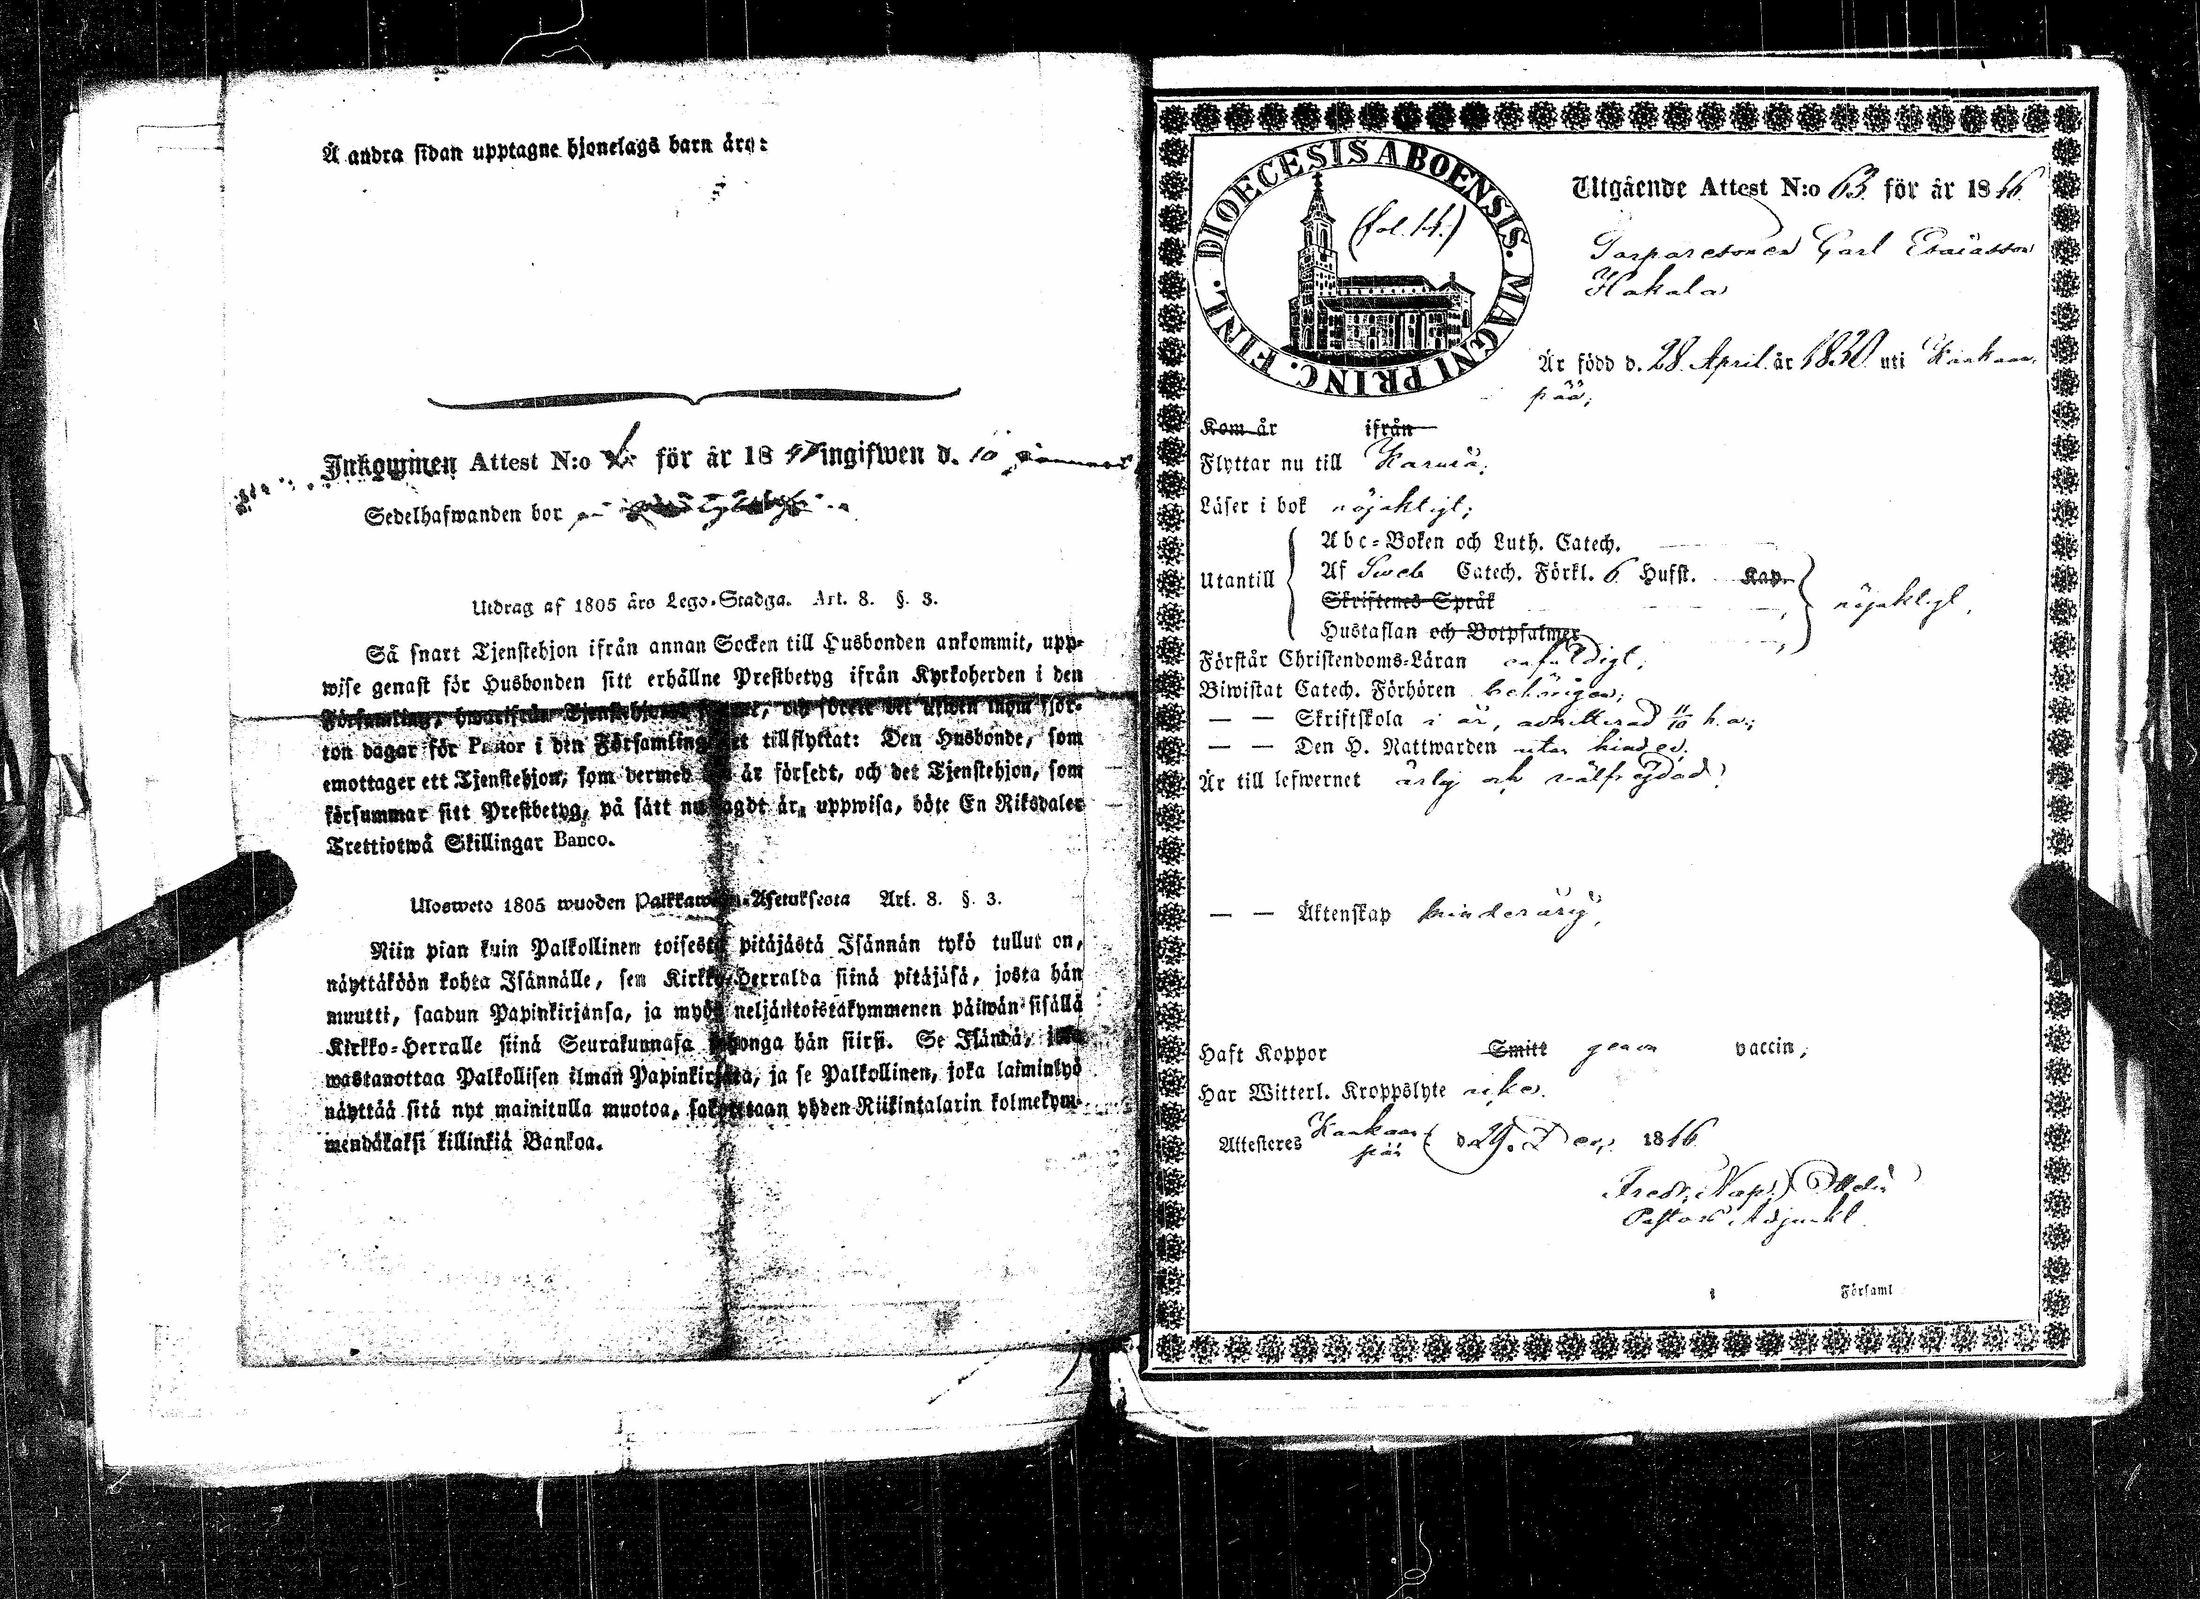 Å andra sidan upptagne hjonelags barn äro:
Inkommen Attest N:o för år 18 47 ingifwen d. 10
Sedelhafwanden bor på
Utdrag af 1805 års Lego-Stadga. Art. 8. §. 3.
Så snart Tjenstehjon ifrån annan Socken till Husbonden ankommit, upp-
wise genast för Husbonden sitt erhållne Prestbetyg ifrån Kyrkoherden i den
Församling, hwarifrån Tjenstehjonet och förete det äfwen inom fjor-
ton dagar för Pastor i den Församling det tillflyttat: Den Husbonde, som
emottager ett Tjenstehjon, som dermed är försedt, och det Tjenstehjon, som
försummar sitt Prestbetyg, på sätt nu sagdt är, uppwisa, böte En Riksdaler
Trettiotwå Skillingar Banco.
Ulosweto 1805 wuoden Asetuksesta Art. 8. §. 3.
Niin pian kuin Palkollinen toisesta pitäjästä Isännän tykö tullut on,
näyttäköön kohta Isännälle, sen Kirkko-Herralda siinä pitäjäsä, josta hän
muutti, saadun Papinkirjansa, ja myös neljäntoistakymmenen päiwän sisällä
Kirkko-Herralle siinä Seurakunnasa johonga hän siirsi. Se Isändä, joka
wastanottaa Palkollisen ilman Papinkirjata, ja se Palkollinen, joka laiminlyö
näyttää sitä nyt mainitulla muotoa, sakotetaan yhden Riikintalarin kolmekym-
mendäkaksi killinkiä Bankoa.
DIOECESIS ABOENSIS. MAGNI PRINC. FINL.
(fol. 14.)
Utgående Attest N:o 63 för år 1846
Torparesonen Carl Esaiasson
Hakala
Är född d. 28 April år 1830 uti Kankaan
pää;
Kom år ifrån
Flyttar nu till Karvia;
Läser i bok nöjaktigt;
Utantill
Abc-Boken och Luth. Catech.
Af Sweb Catech. Förkl. 6 Hufst. Kap.
Skriftenes Språk
Hustaflan och Botpsalmer
nöjaktigt,
Förstår Christendoms-Läran enfaldigt;
Biwistat Catech. Förhören behörigen;
— — Skriftskola i år, admitterad 11/10 h. a.;
— — Den H. Nattwarden utan hinder.
Är till lefwernet ärlig och välfrejdad;
— — Äktenskap minderårig,
Haft Koppor Smitt genom vaccin;
Har Witterl. Kroppslyte icke.
Attesteres Kankaan
pää d. 29. Dec. 1846
Fredr. Nap.
Pastors Adjunkt
i Församl